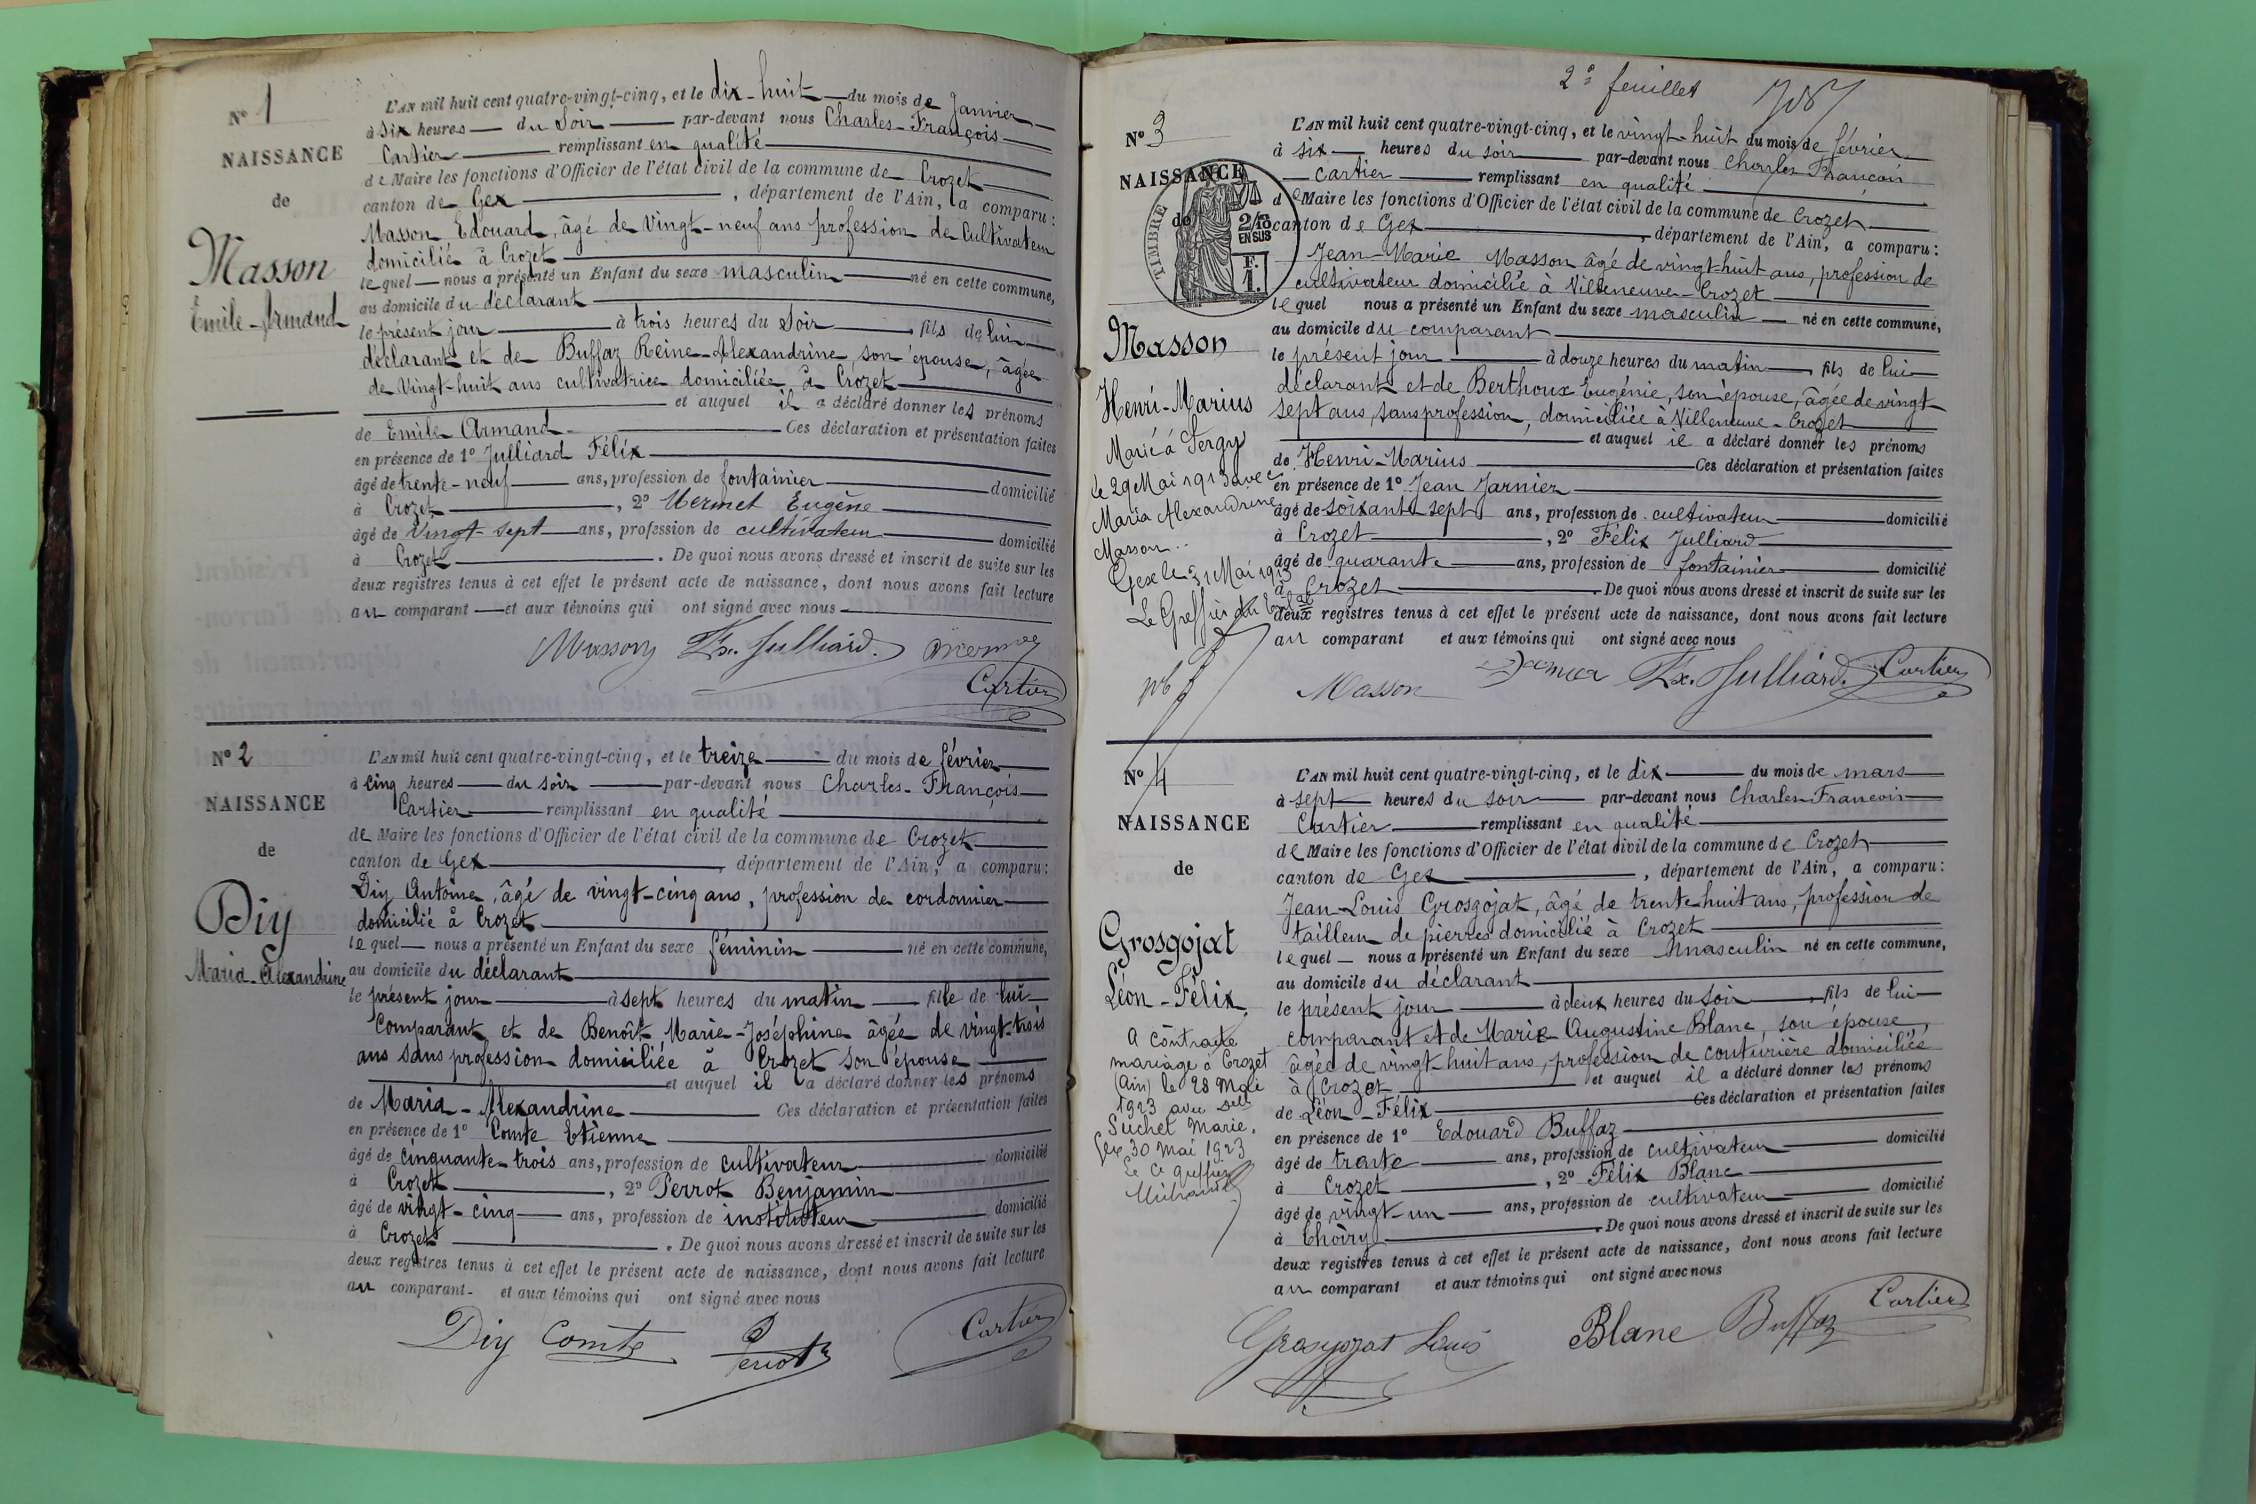 N° 1
NAISSANCE
de
Masson
Emile-Armand
L'AN mil huit cent quatre-vingt-cinq, et le dix-huit du mois de Janvier
à six heures du Soir par-devant nous Charles-François
Cartier remplissant en qualité
de Maire les fonctions d'Officier de l'état civil de la commune de Crozet
canton de Gex, département de l'Ain, a comparu :
Masson Edouard, âgé de Vingt-neuf ans profession de Cultivateur
domicilié à Crozet
lequel nous a présenté un Enfant du sexe masculin né en cette commune,
au domicile du déclarant
le présent jour à trois heures du Soir, fils de lui
déclarant et de Buffaz Reine-Alexandrine, son épouse, âgée
de Vingt-huit ans cultivatrice domiciliée à Crozet
et auquel il a déclaré donner les prénoms
de Emile Armand. Ces déclaration et présentation faites
en présence de 1° Julliard Félix
âgé de trente-neuf ans, profession de fontainier domicilié
à Crozet, 2° Mermet Eugène
âgé de Vingt-sept ans, profession de cultivateur domicilié
à Crozet. De quoi nous avons dressé et inscrit de suite sur les
deux registres tenus à cet effet le présent acte de naissance, dont nous avons fait lecture
au comparant et aux témoins qui ont signé avec nous
Masson Fx. Julliard. Mermet
Cartier
N° 2
NAISSANCE
de
Diy
Maria-Alexandrine
L'AN mil huit cent quatre-vingt-cinq, et le treize du mois de février
à cinq heures du soir par-devant nous Charles-François
Cartier remplissant en qualité
de Maire les fonctions d'Officier de l'état civil de la commune de Crozet
canton de Gex, département de l'Ain, a comparu :
Diy Antoine, âgé de vingt-cinq ans, profession de cordonnier
domicilié à Crozet
lequel nous a présenté un Enfant du sexe féminin né en cette commune,
au domicile du déclarant
le présent jour à sept heures du matin fille de lui
Comparant et de Benoît Marie-Joséphine âgée de vingt-trois
ans sans profession domiciliée à Crozet son épouse
et auquel il a déclaré donner les prénoms
de Maria-Alexandrine Ces déclaration et présentation faites
en présence de 1° Comte Etienne
âgé de cinquante-trois ans, profession de cultivateur domicilié
à Crozet, 2° Perrot Benjamin
âgé de vingt-cinq ans, profession de instituteur domicilié
à Crozet. De quoi nous avons dressé et inscrit de suite sur les
deux registres tenus à cet effet le présent acte de naissance, dont nous avons fait lecture
au comparant et aux témoins qui ont signé avec nous
Diy Comte Perrot Cartier
2e feuillet
N° 3
NAISSANCE
de
TIMBRE
2/10
EN SUS
F.
1.
Masson
Henri-Marius
Marié à Sergy
le 29 Mai 1913 avec
Maria Alexandrine
Masson..
Gex le 31 Mai 1913
Le Greffier
L'AN mil huit cent quatre-vingt-cinq, et le vingt-huit du mois de février
à six heures du soir par-devant nous Charles François
Cartier remplissant en qualité
de Maire les fonctions d'Officier de l'état civil de la commune de Crozet
canton de Gex, département de l'Ain, a comparu :
Jean-Marie Masson âgé de vingt-huit ans, profession de
cultivateur domicilié à Villeneuve-Crozet
lequel nous a présenté un Enfant du sexe masculin né en cette commune,
au domicile du comparant
le présent jour à douze heures du matin, fils de lui
déclarant et de Berthoux Eugénie, son épouse, âgée de vingt-
sept ans, sans profession, domiciliée à Villeneuve-Crozet
et auquel il a déclaré donner les prénoms
de Henri-Marius Ces déclaration et présentation faites
en présence de 1° Jean Jarnier
âgé de soixante sept ans, profession de cultivateur domicilié
à Crozet, 2° Félix Julliard
âgé de quarante ans, profession de fontainier domicilié
à Crozet. De quoi nous avons dressé et inscrit de suite sur les
deux registres tenus à cet effet le présent acte de naissance, dont nous avons fait lecture
au comparant et aux témoins qui ont signé avec nous
Masson Jarnier Fx. Julliard. Cartier
N° 4
NAISSANCE
de
Grosgojat
Léon-Félix
A contracté
mariage à Crozet
(Ain) le 28 Mai
1923 avec Delle
Suchet Marie.
Gex, 30 Mai 1923
Le Ce greffier
L'AN mil huit cent quatre-vingt-cinq, et le dix du mois de mars
à sept heures du soir par-devant nous Charles François
Cartier remplissant en qualité
de Maire les fonctions d'Officier de l'état civil de la commune de Crozet
canton de Gex, département de l'Ain, a comparu :
Jean-Louis Grosgojat, âgé de trente huit ans, profession de
tailleur de pierres domicilié à Crozet
lequel nous a présenté un Enfant du sexe masculin né en cette commune,
au domicile du déclarant
le présent jour à deux heures du soir, fils de lui
comparant et de Marie Augustine Blanc, son épouse
âgée de vingt-huit ans, profession de couturière domiciliée
à Crozet et auquel il a déclaré donner les prénoms
de Léon-Félix Ces déclaration et présentation faites
en présence de 1° Edouard Buffaz
âgé de trente ans, profession de cultivateur domicilié
à Crozet, 2° Félix Blanc
âgé de vingt-un ans, profession de cultivateur domicilié
à Thoiry. De quoi nous avons dressé et inscrit de suite sur les
deux registres tenus à cet effet le présent acte de naissance, dont nous avons fait lecture
au comparant et aux témoins qui ont signé avec nous
Grosgojat Louis Blanc Buffaz Cartier